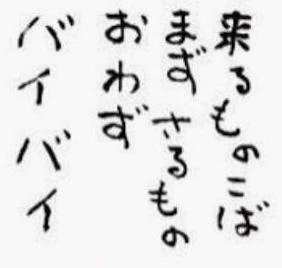 来るものこば
まずさるもの
おわず
バイバイ